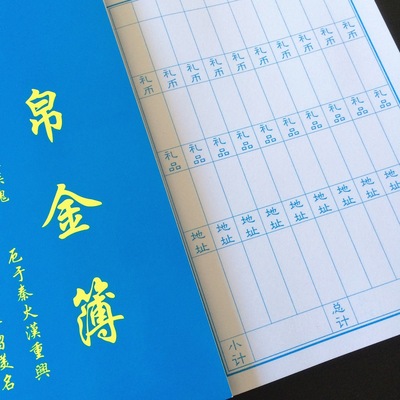 帛金簿
厄于秦火漢重興
留美名
礼币 礼币 礼币 礼币 礼币 礼币 礼币 礼币 礼币
礼品 礼品 礼品 礼品 礼品 礼品 礼品 礼品 礼品
地址 地址 地址 地址 地址 地址 地址 地址 地址
小计 总计